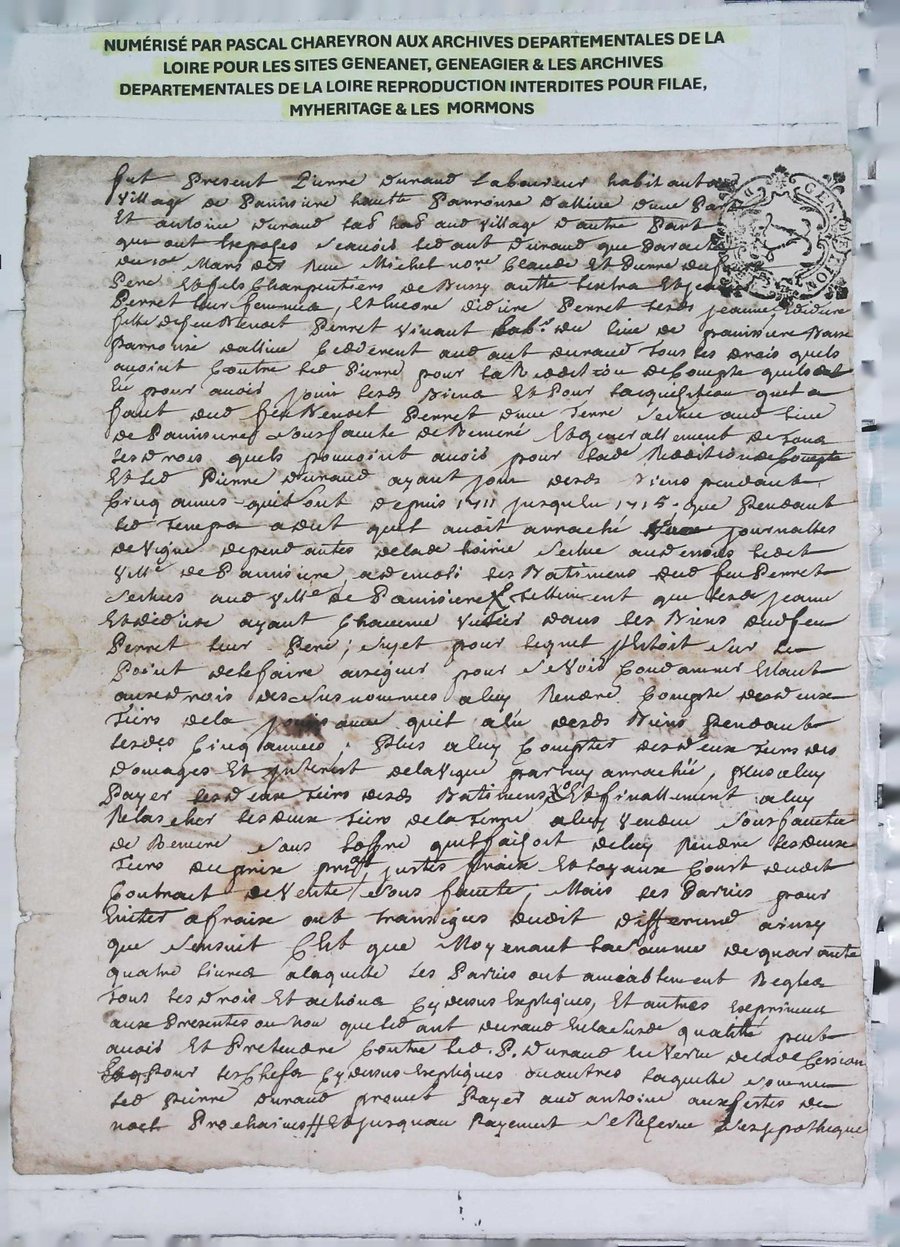 NUMÉRISÉ PAR PASCAL CHAREYRON AUX ARCHIVES DEPARTEMENTALES DE LA
LOIRE POUR LES SITES GENEANET, GENEAGIER & LES ARCHIVES
DEPARTEMENTALES DE LA LOIRE REPRODUCTION INTERDITES POUR FILAE,
MYHERITAGE & LES MORMONS
fut Present Pierre durand laboureur habitant au
village de Panissiere haute Parroisse d'allieu d'une Part
Et antoine durand lab hab aud village d'autre Part
qui ont Exposés scavoir led ant durand que Par acte
du Mars der Reçu Michel nore Claude Et Pierre
Pere Et fils Charpentiers de Bussy Et
Perret leur femmes, Et Encore didiere Perret lesd jeanne Et didiere
fille de feu Benoit Perret vivant labr du lieu de panissiere Basse
Parroisse dallieu Cedderent aud ant durand tous les drois quels
avoint Contre led Pierre pour la Reddition de Compte quils
pour avoir jouir lesd Biens Et Pour lacquisition quil a
faut dud feu Benoit Perret d'une Terre scitue aud lieu
de Panissiere sous faculte de Remeré Et generallement de tous
les drois quels pouvoint avoir pour lade Reddition de Compte
Et led Pierre durand ayant joui desds Biens pendant
Cinq années quil ont depuis 1711 jusqu'en 1715 que Pendant
led temps a dit quil avoit arraché journallés
de vigne dependantes delade scitue led
ville de Panissiere, a demoli les Batimens dud feu Perret
scitues aud ville de Panissiere tellement que lesd jeanne
Et didiere ayant Chacune un tier dans les Biens dud feu
Perret leur Pere, sujet pour lequel il Estoit sur le
Point de le faire pour se voir Condamner Estant
aux drois des susnommés a luy Rendre Compte des deux
tiers de la jouissance quil a desds Biens Pendant
lesdes Cinq années, Plus a luy Compter des deux tiers des
domages Et jnterest de la vigne par luy arrachée, plus a luy
Payer les deux tiers desds Batimens Et finallement a luy
Relascher les deux tiers de la terre a luy vendue sous faculte
de Remere sous loffre quil faisoit de luy Rendre les deux
tiers du prix justes fraix Et loyaux Coust dudit
Contract de vente sous faculte, Mais les Parties pour
Eviter a fraix ont transigés dudit differend ainsy
que sensuit C'Est que Moyenant la somme de quarante
quatre livres a laquelle les Parties ont amiablement Regles
tous les drois Et actions Cy dessus Expliqués, Et autres Exprimés
aux Presentes ou non que led ant durand En lad qualité peut
avoir Et Pretendre Contre led P. durand En vertu delade Cession
Pour les Chefs Cy dessus Expliques ou autres laquelle somme
led Pierre durand promet Payer aud antoine aux festes de
noel Prochaines Et jusquau Payement se Reserve